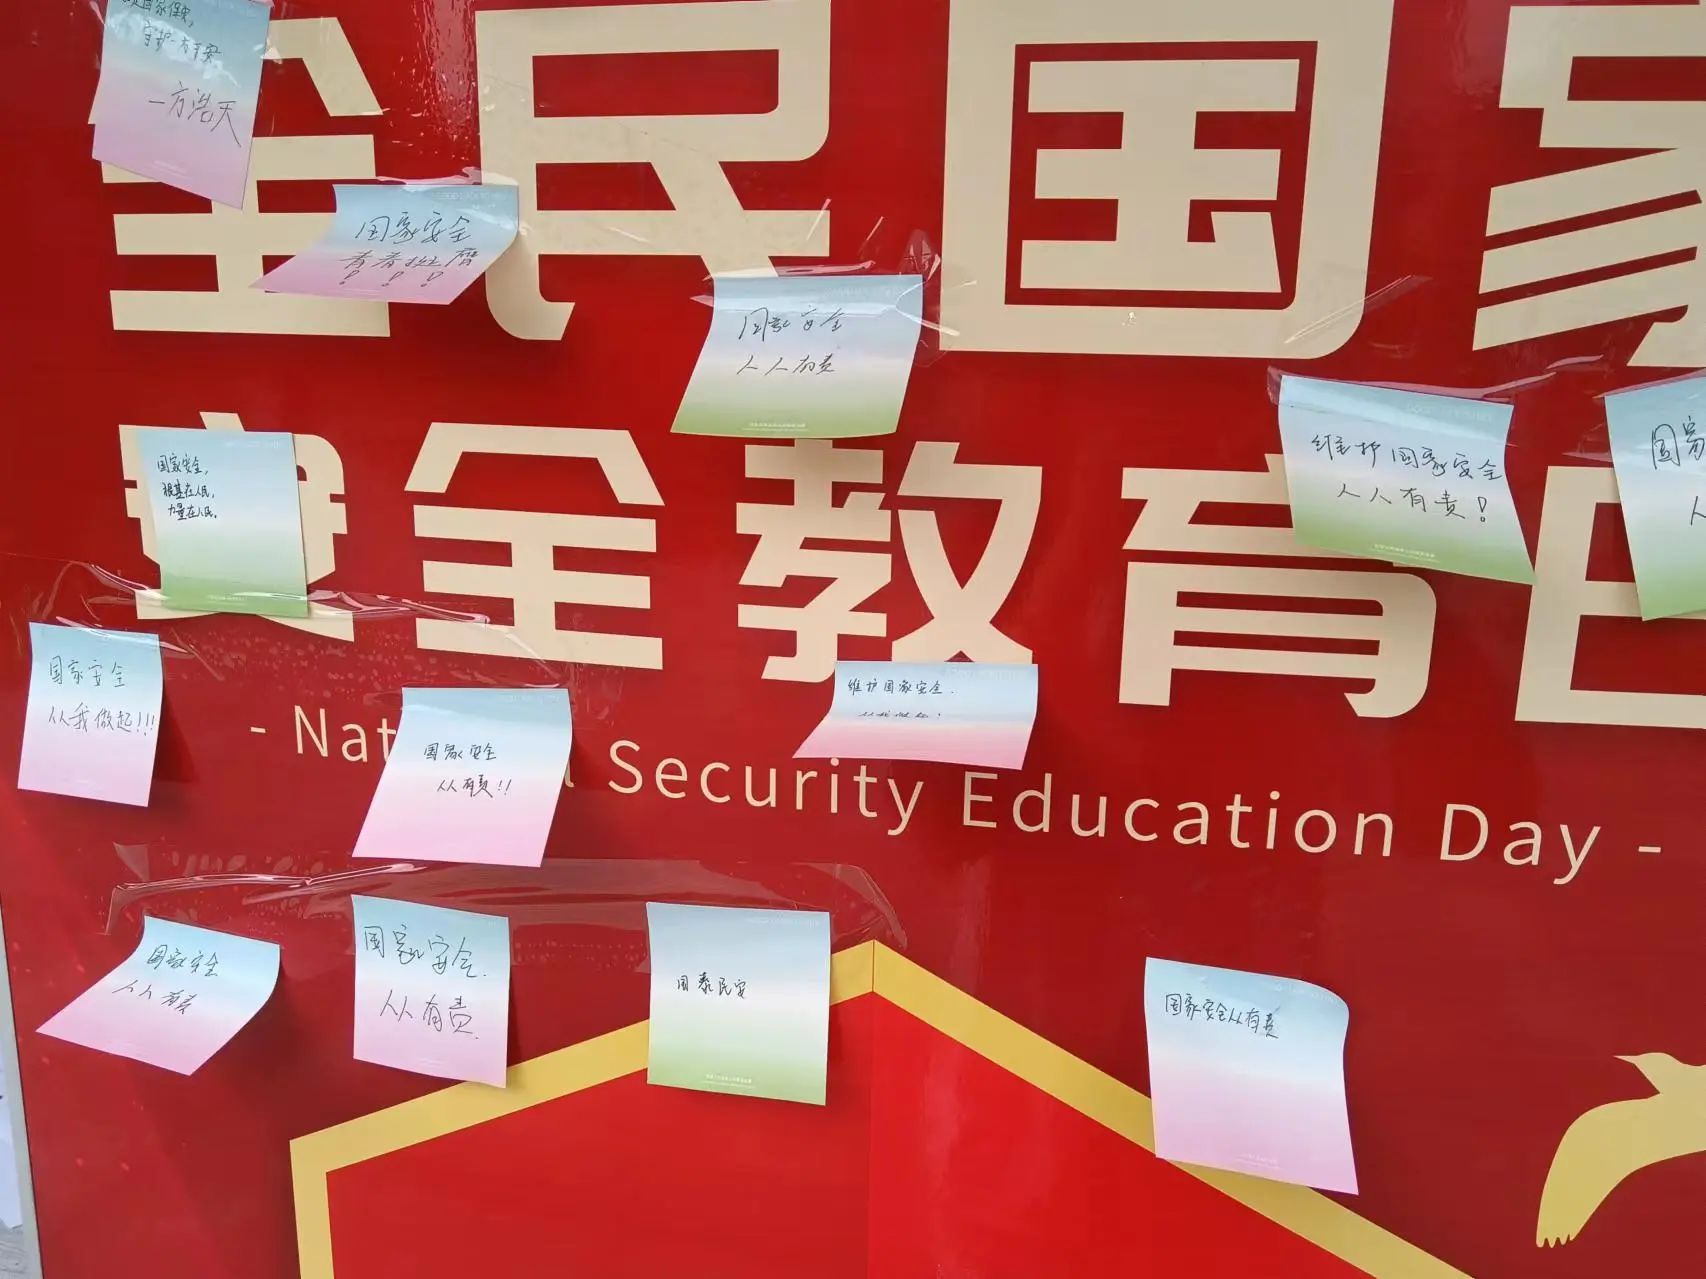 全民国家
安全教育日
- National Security Education Day -
国家保安,
守护一方平安
一方浩天
国家安全
青春挺膺
! ! !
国家安全
人人有责
维护国家安全
人人有责!
国家
人
国家安全,
根基在人民,
力量在人民。
国家安全
从我做起!!!
国家安全
人人有责!!
维护国家安全.
从我做起!
国家安全
人人有责
国家安全.
人人有责.
国泰民安
国家安全人人有责